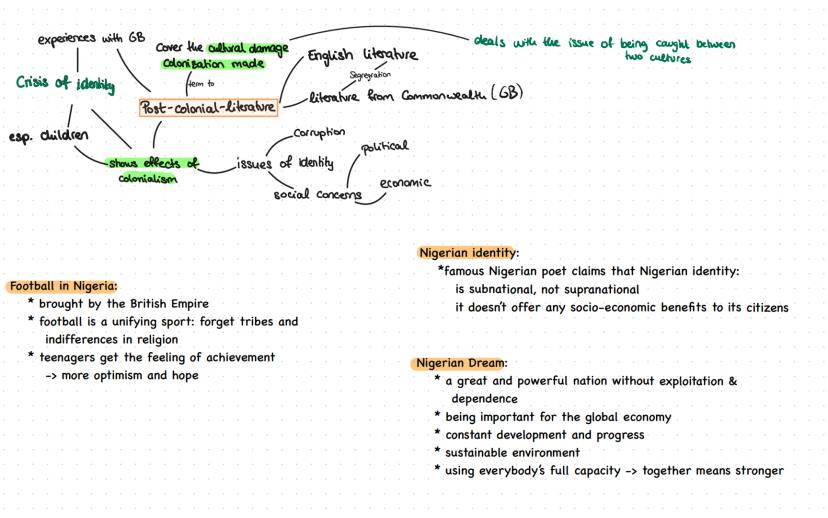 experiences with GB
Cover the cultural damage
Colonisation made
deals with the issue of being caught between
two cultures
English literature
Segregration
Crisis of identity
term to
Post-colonial-literature
literature from Commonwealth (GB)
esp. children
shows effects of
colonialism
issues of identity
Corruption
political
social concerns
economic
Nigerian identity:
*famous Nigerian poet claims that Nigerian identity:
is subnational, not supranational
it doesn't offer any socio-economic benefits to its citizens
Football in Nigeria:
* brought by the British Empire
* football is a unifying sport: forget tribes and
indifferences in religion
* teenagers get the feeling of achievement
-> more optimism and hope
Nigerian Dream:
* a great and powerful nation without exploitation &
dependence
* being important for the global economy
* constant development and progress
* sustainable environment
* using everybody's full capacity -> together means stronger